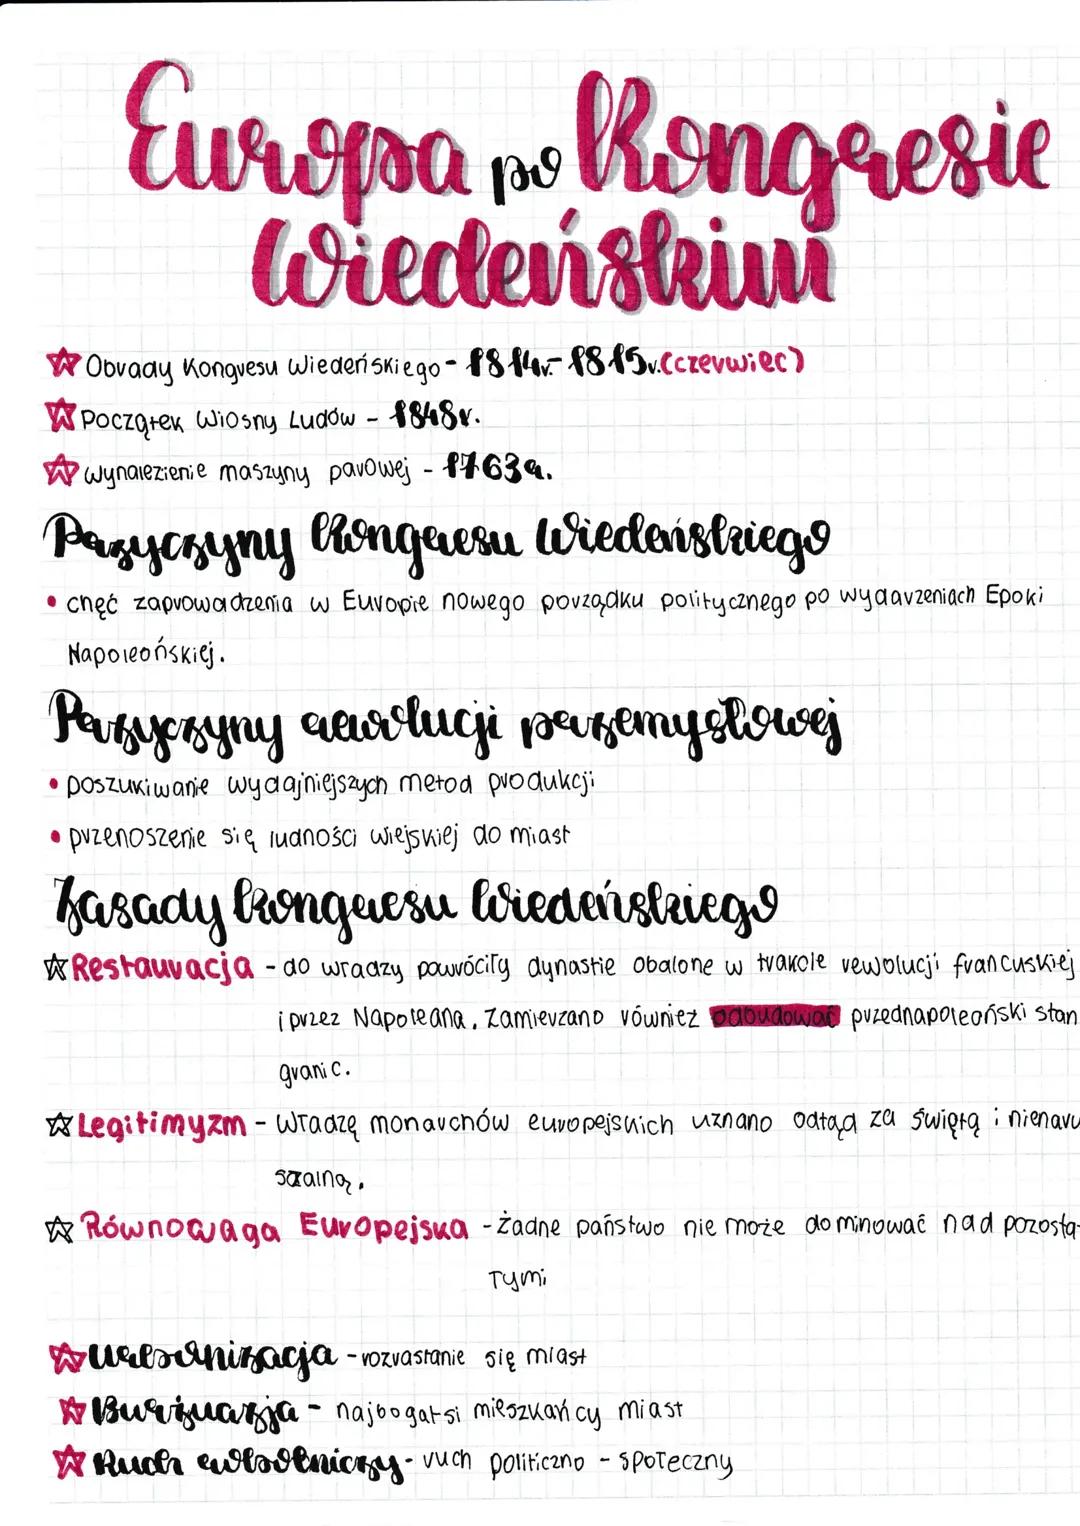 Europa po Kongresie
Wiedeńskim
Obrady Kongresu Wiedeńskiego - 1814r.-1815r.(czerwiec)
Początek Wiosny Ludów - 1848r.
wynalezienie maszyny parowej - 1763r.
Przyczyny Kongresu Wiedeńskiego
• chęć zaprowadzenia w Europie nowego porządku politycznego po wydarzeniach Epoki
Napoleońskiej.
Przyczyny rewolucji przemysłowej
• poszukiwanie wydajniejszych metod produkcji
• przenoszenie się ludności wiejskiej do miast
Zasady kongresu Wiedeńskiego
Restauracja - do władzy powróciły dynastie obalone w trakcie rewolucji francuskiej
i przez Napoleana. Zamierzano również odbudować przednapoleoński stan
granic.
Legitimyzm - Władzę monarchów europejskich uznano odtąd za świętą i nienaru
szalną.
Równowaga Europejska - żadne państwo nie może dominować nad pozosta-
łymi
urbanizacja - rozrastanie się miast
Burżuazja - najbogatsi mieszkańcy miast
Ruch robotniczy - ruch politiczno - społeczny